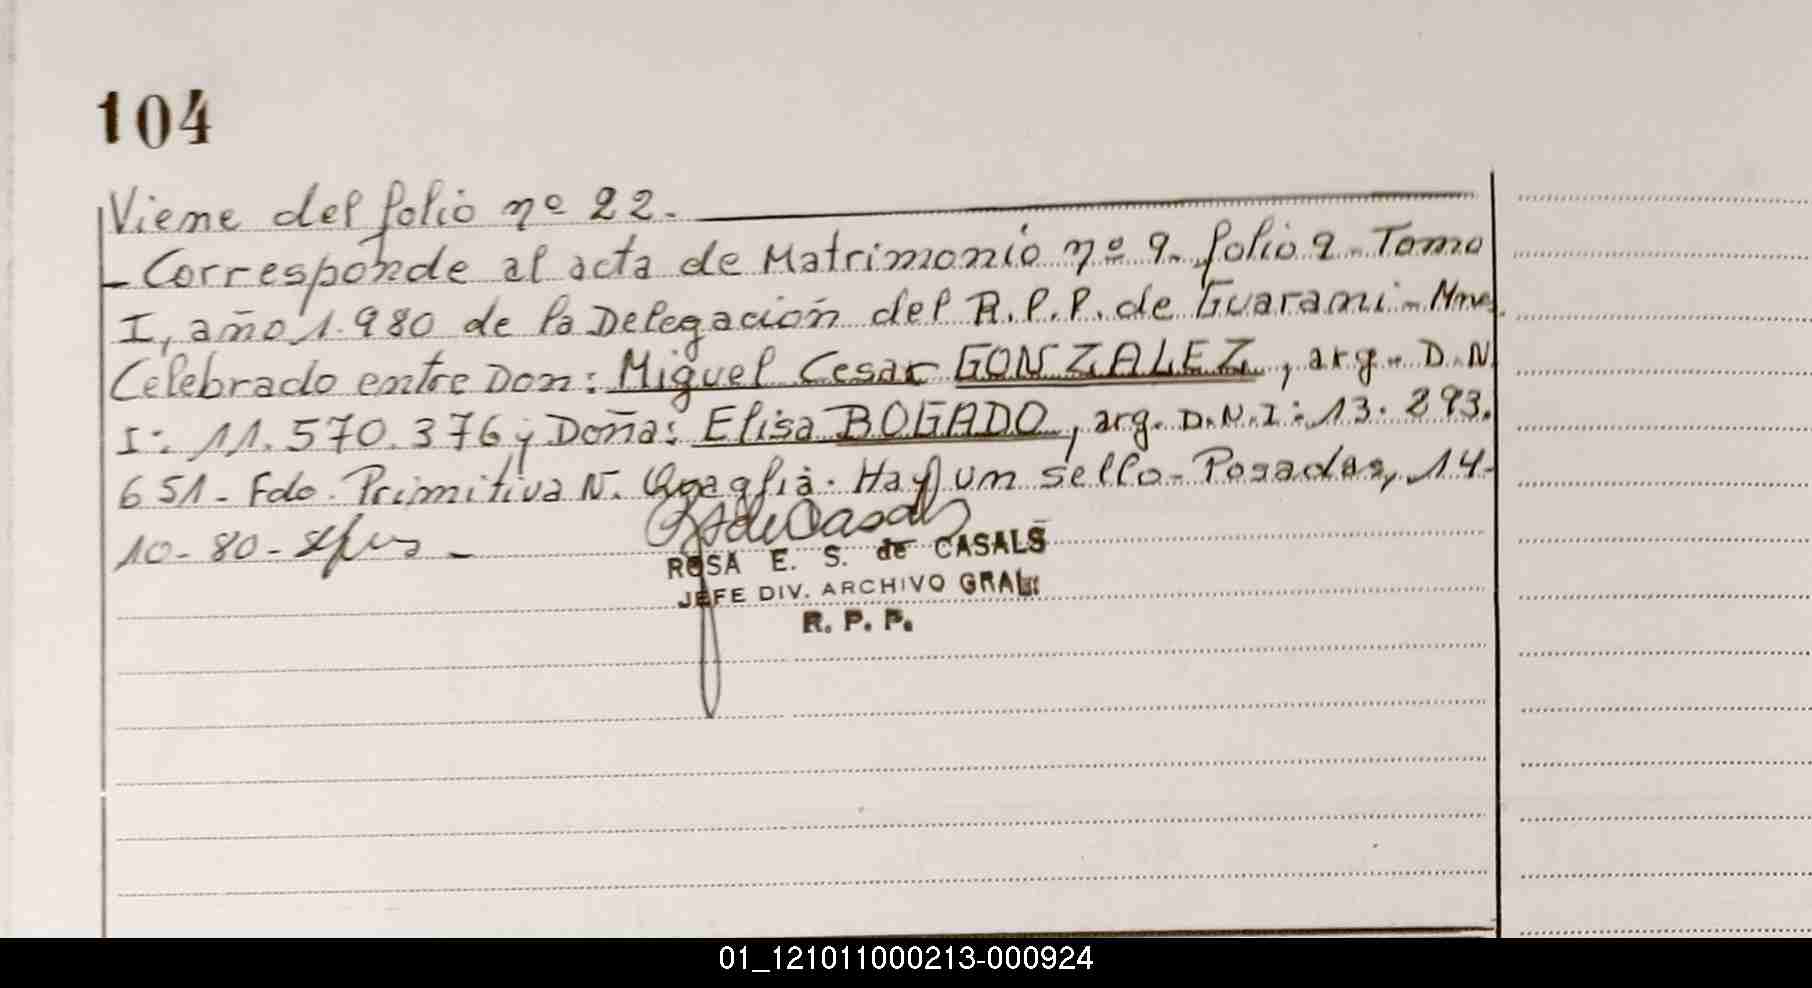 104
Viene del folio nº 22.
- Corresponde al acta de Matrimonio nº 9. folio 9. Tomo
I, año 1.980 de la Delegación del R.P.P. de Guarani - Mnes.
Celebrado entre Don: Miguel Cesar GONZALEZ, arg. D.N.
I: 11.570.376 y Doña: Elisa BOGADO, arg. D.N.I: 13.893.
651 - Fdo. Primitiva N. Hay un sello - Posadas, 14-
10-80-
ROSA E. S. de CASALS
JEFE DIV. ARCHIVO GRAL.
R. P. P.
01_121011000213-000924